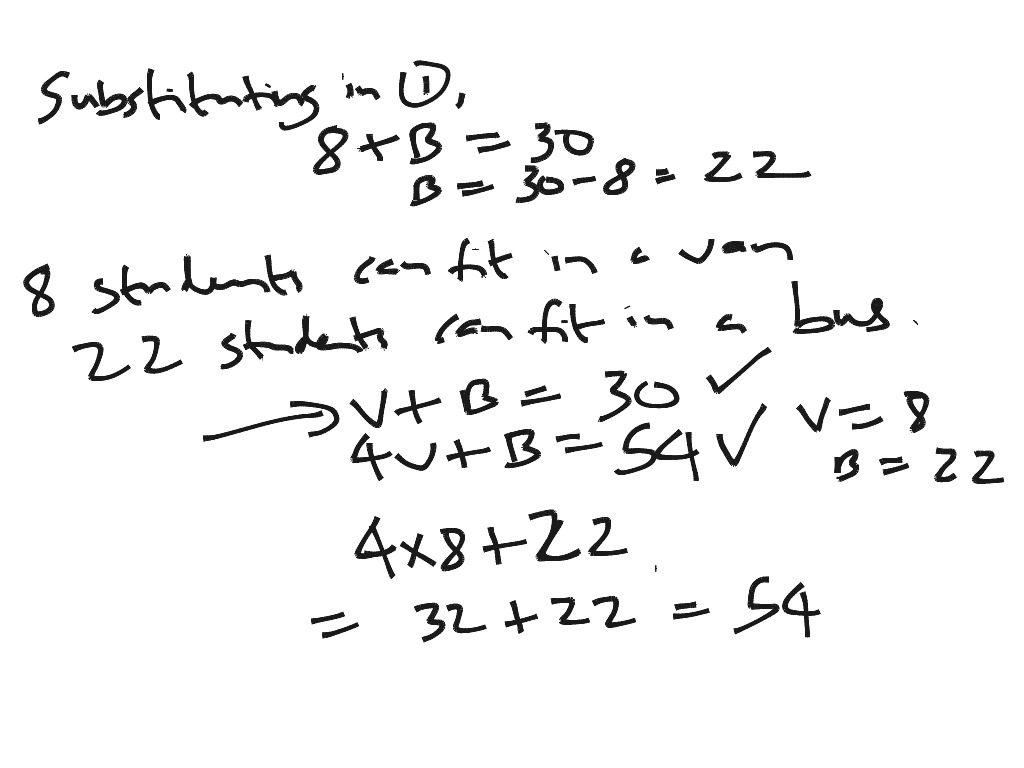 Substituting in ①,
8 + B = 30
B = 30 - 8 = 22
8 students can fit in a van
22 students can fit in a bus.
→ V + B = 30 ✓
4V + B = 54 ✓ V = 8
B = 22
4 × 8 + 22
= 32 + 22 = 54